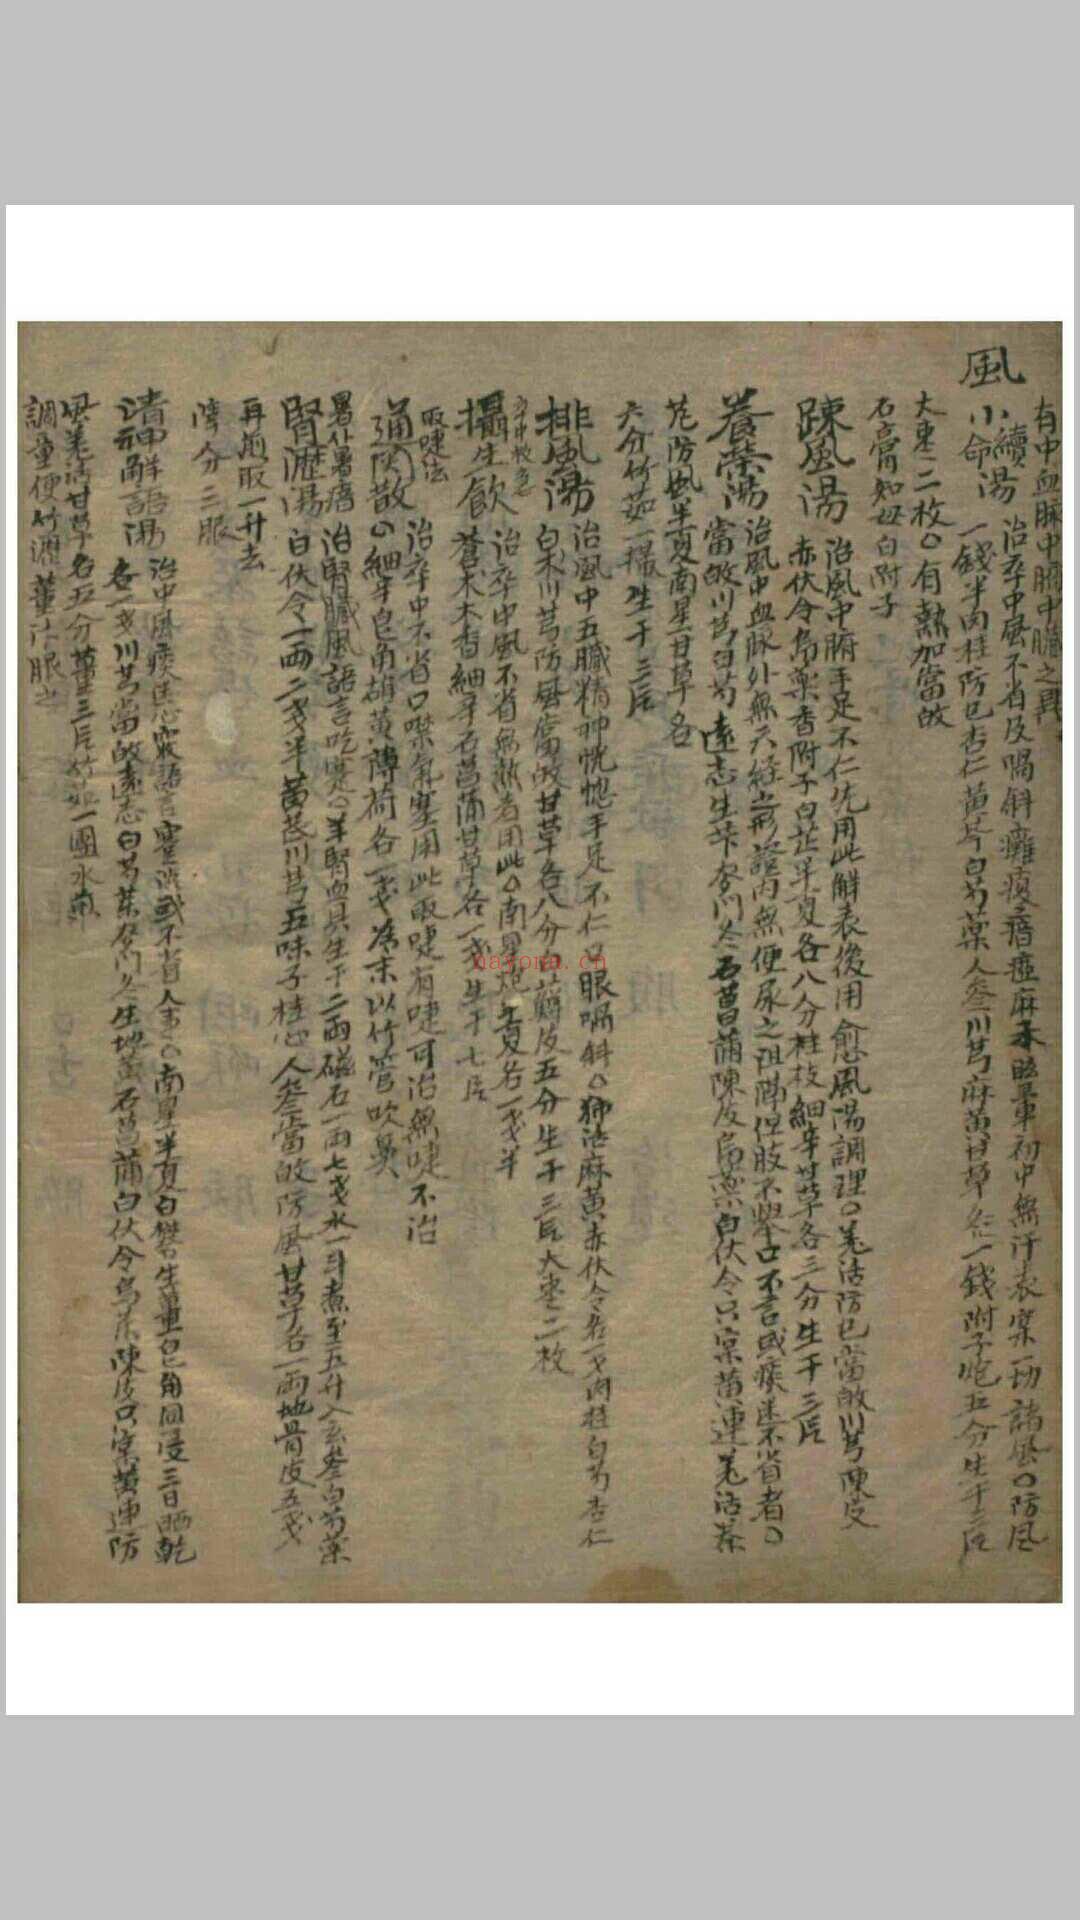 風
有中血脉中腑中臟之異
小續命湯 治卒中風不省及喎斜癱瘓瘖瘂麻木眩暈初中無汗表宲一切諸風○防風
一錢半肉桂防已杏仁黃芩白芍藥人叄川芎麻黃甘草各一錢附子炮五分生干三片
大棗二枚○有熱加當皈
石膏知母白附子
踈風湯 治風中腑手足不仁先用此解表後用愈風湯調理○羌活防已當皈川芎陳皮
赤伏令烏藥香附子白芷半夏各八分桂枝細辛甘草各三分生干三片
養荣湯 治風中血脉外無六經之形證內無便尿之阻隔但肢不舉口不言或痰迷不省者○
當皈川芎白芍遠志生芐麥門冬石菖蒲陳皮烏藥白伏令只宲黃連羌活秦
芃防風半夏南星甘草各
六分竹茹一撮生干三片
排風湯 治風中五臟精神恍惚手足不仁口眼喎斜○獨活麻黃赤伏令各一戔肉桂白芍杏仁
白朮川芎防風當皈甘草各八分白蘚皮五分生干三片大棗二枚
攝生飮 治卒中風不省無熱者用此○南星炮半夏各一戔半
蒼朮木香細辛石菖蒲甘草各一戔生干七片
取嚔法
通関散 治卒中不省口噤氣塞用此取嚔有嚔可治無嚔不治
○細辛皂角雄黃薄荷各一戔為末以竹管吹鼻
腎瀝湯 治腎臟風語言吃蹇○羊腎血具生干二兩磁石一兩七戔水一斗煮至五升入玄叄白芍藥
白伏令一兩二戔半黃芪川芎五味子桂心人叄當皈防風甘草各一兩地骨皮五戔
再煎取一升去
滓分三服
清神解語湯 治中風痰迷心竅語言蹇澁或不省人事○南星半夏白礬生薑皂角同浸三日晒乾
各一戔川芎當皈遠志白芍荣麥門冬生地黃石菖蒲白伏令烏藥陳皮只宲黃連防
風羌活甘草各五分薑三片竹茹一團水煎
調童便竹瀝薑汁服之